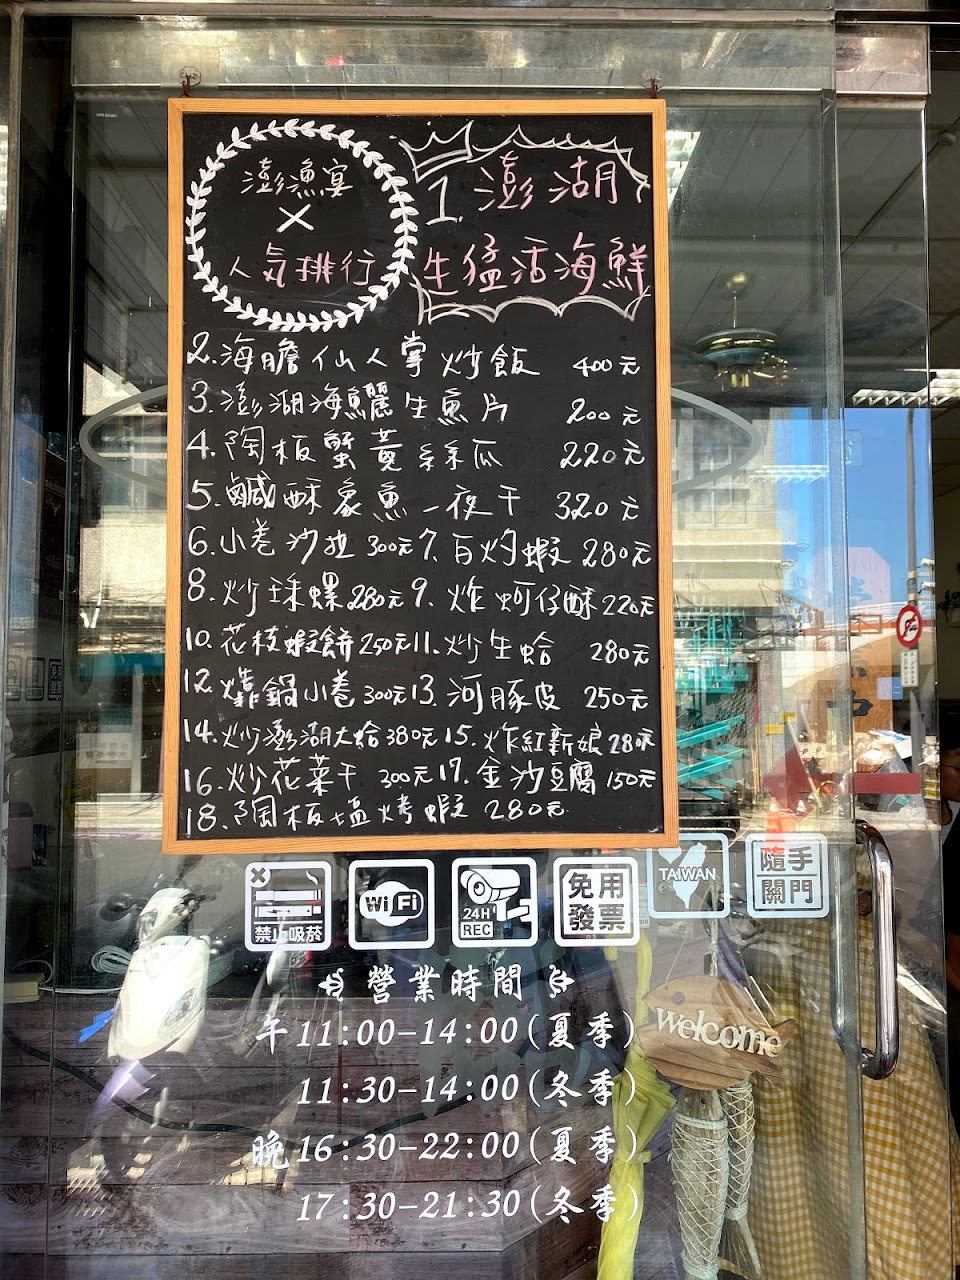 澎漁宴
×
人氣排行
1. 澎湖
生猛活海鮮
2. 海膽仙人掌炒飯 400元
3. 澎湖海鱺生魚片 200元
4. 陶板蟹黃絲瓜 220元
5. 鹹酥象魚一夜干 320元
6. 小卷沙拉 300元 7. 白灼蝦 280元
8. 炒珠螺 280元 9. 炸蚵仔酥 220元
10. 花枝蝦餅 250元 11. 炒生蛤 280元
12. 燴鍋小卷 300元 13. 河豚皮 250元
14. 炒澎湖大蛤 380元 15. 炸紅新娘 280元
16. 炒花菜干 300元 17. 金沙豆腐 150元
18. 陶板塩烤蝦 280元
禁止吸菸
WiFi
24H
REC
免用
發票
TAIWAN
隨手
關門
營業時間
午 11:00-14:00(夏季)
11:30-14:00(冬季)
晚 16:30-22:00(夏季)
17:30-21:30(冬季)
welcome